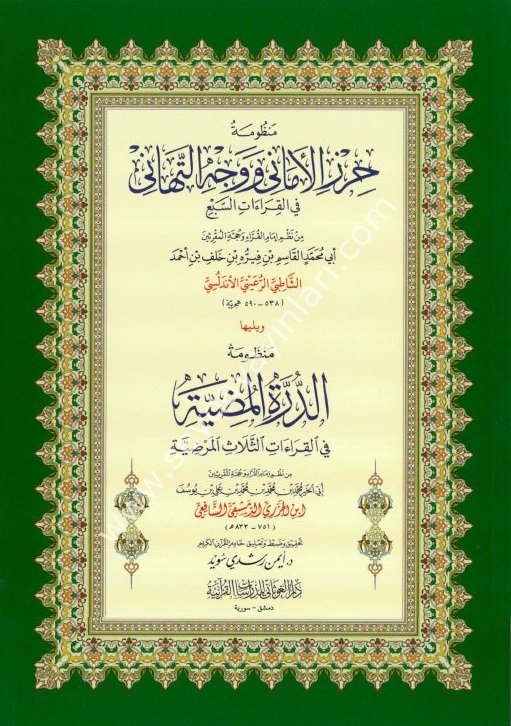 منظومة
حرز الأماني ووجه التهاني
في القراءات السبع
من نظم إمام القراء وحجة المقرئين
أبي محمد القاسم بن فيره بن خلف بن أحمد
الشاطبي الرعيني الأندلسي
(٥٣٨ - ٥٩٠ هجرية)
ويليها
منظومة
الدرة المضية
في القراءات الثلاث المرضية
من نظم إمام القراء وحجة المقرئين
أبي الخير محمد بن محمد بن محمد بن علي بن يوسف
ابن الجزري الدمشقي الشافعي
(٧٥١ - ٨٣٣ هـ)
تحقيق وضبط وتعليق خادم القرآن الكريم
د. أيمن رشدي سويد
دار الغوثاني للدراسات القرآنية
دمشق - سورية